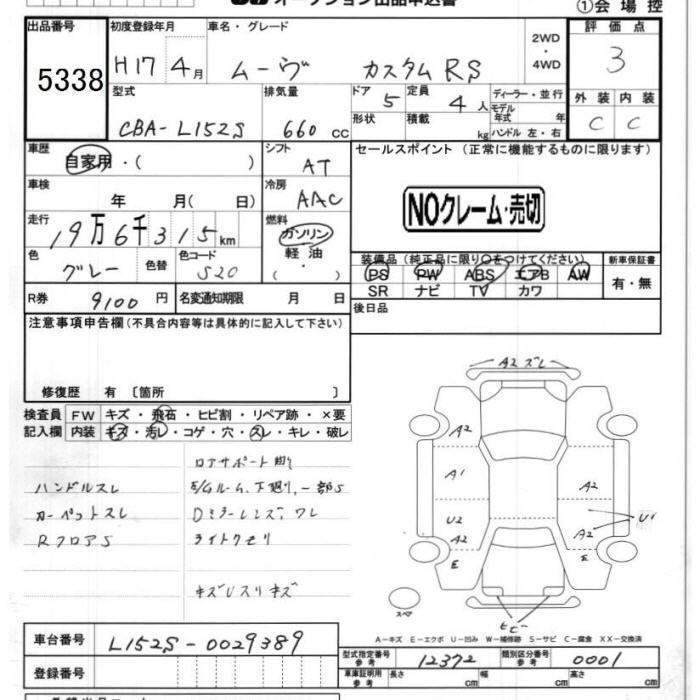 オークション出品申込書 ①会場控
出品番号 初度登録年月 車名・グレード 2WD ・ 4WD 評価点
5338 H17 4月 ムーヴ カスタム RS 3
型式 排気量 ドア 5 定員 4人 ディーラー・並行 外装 内装
CBA-L152S 660 cc 形状 積載 kg モデル年式 年 ハンドル 左・右 C C
車歴 自家用・( ) シフト AT セールスポイント (正常に機能するものに限ります)
車検 年 月( 日) 冷房 AAC
NOクレーム・売切
走行 19万6千315km 燃料 ガソリン 軽油 ( )
色 グレー 色替 色コード S20
装備品(純正品に限り○をつけてください) 新車保証書
PS PW ABS エアB AW 有・無
SR ナビ TV カワ
R券 9100円 名変通知期限 月 日 後日品
注意事項申告欄(不具合内容等は具体的に記入して下さい)
修復歴 有 〔箇所 〕
検査員 FW キズ・飛石・ヒビ割・リペア跡・×要
記入欄 内装 キズ・汚レ・コゲ・穴・スレ・キレ・破レ
ロアサポート
ハンドルスレ E/Gルーム、下廻り、一部S
カーペットスレ Dミラーレンズ、ワレ
RフロアS ライトクモリ
キズUスリキズ
A2 ズレ
A2
A1 A2
U2 U1
A2 A2
E E
スペア ヒビ
A-キズ E-エクボ U-凹み W-補修跡 S-サビ C-腐食 XX-交換済
車台番号 L152S-0029389
型式指定番号 参考 12372 類別区分番号 参考 0001
登録番号 車庫証明用 参考 長さ cm 幅 cm 高さ cm